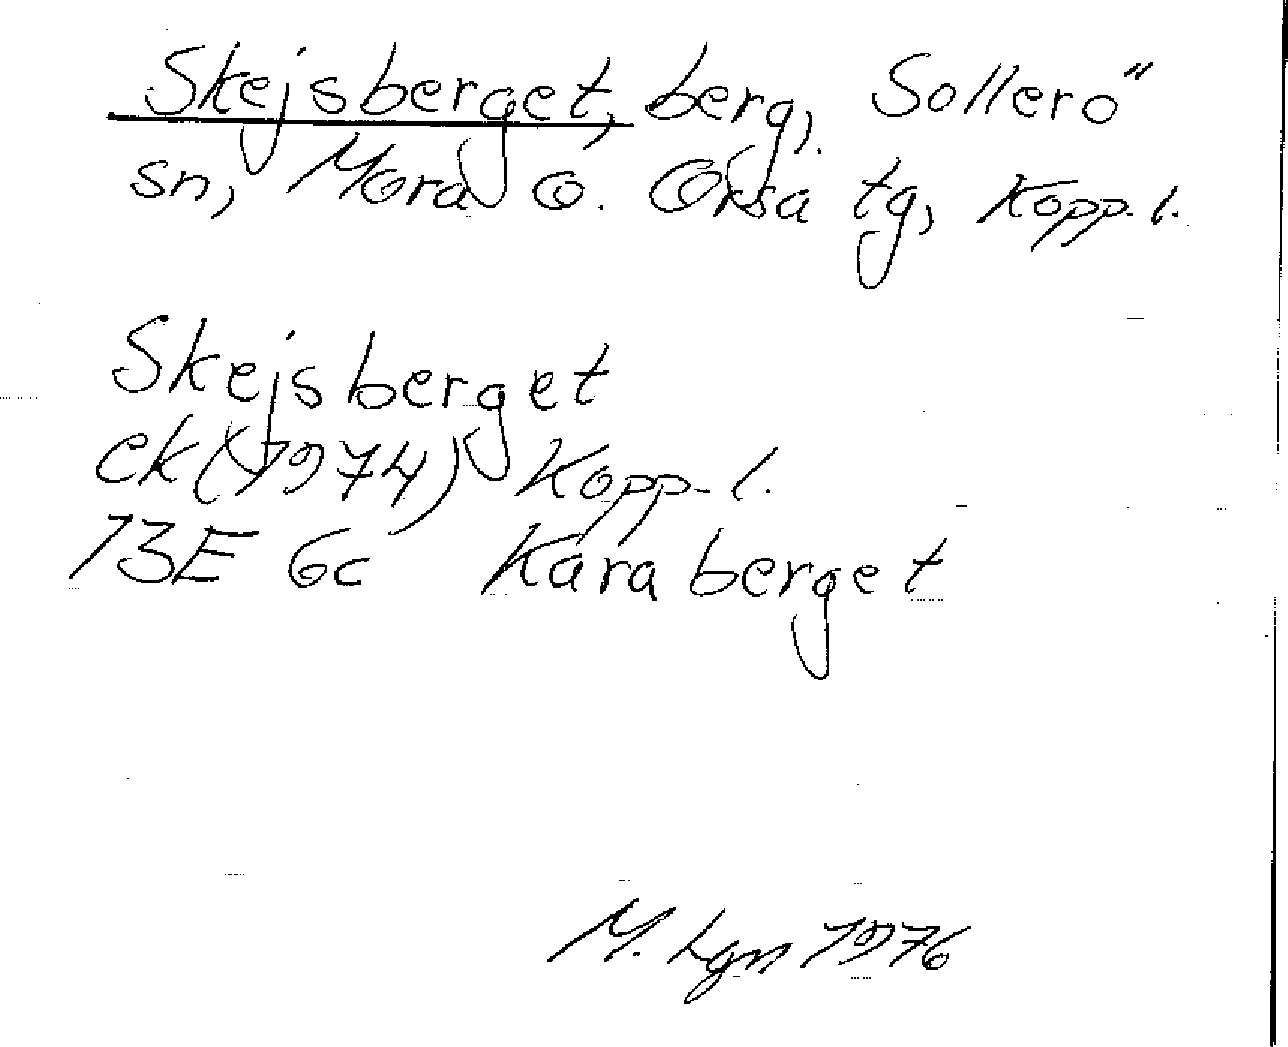 Skejsberget, berg, Sollerö
sn, Mora o. Orsa tg, Kopp. l.
Skejsberget
ek (1974) Kopp. l.
13E 6c Karaberget
M. Lgn 1976